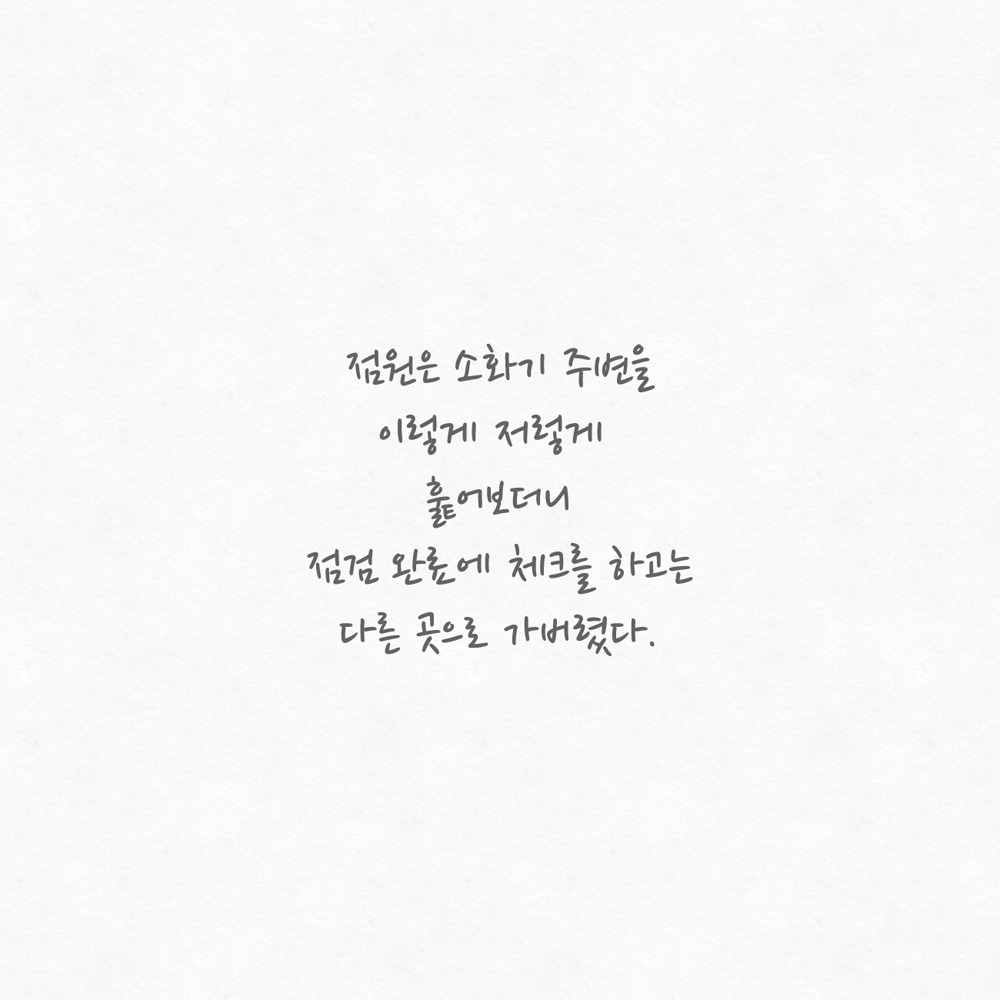 점원은 소화기 주변을
이렇게 저렇게
훑어보더니
점검 완료에 체크를 하고는
다른 곳으로 가버렸다.